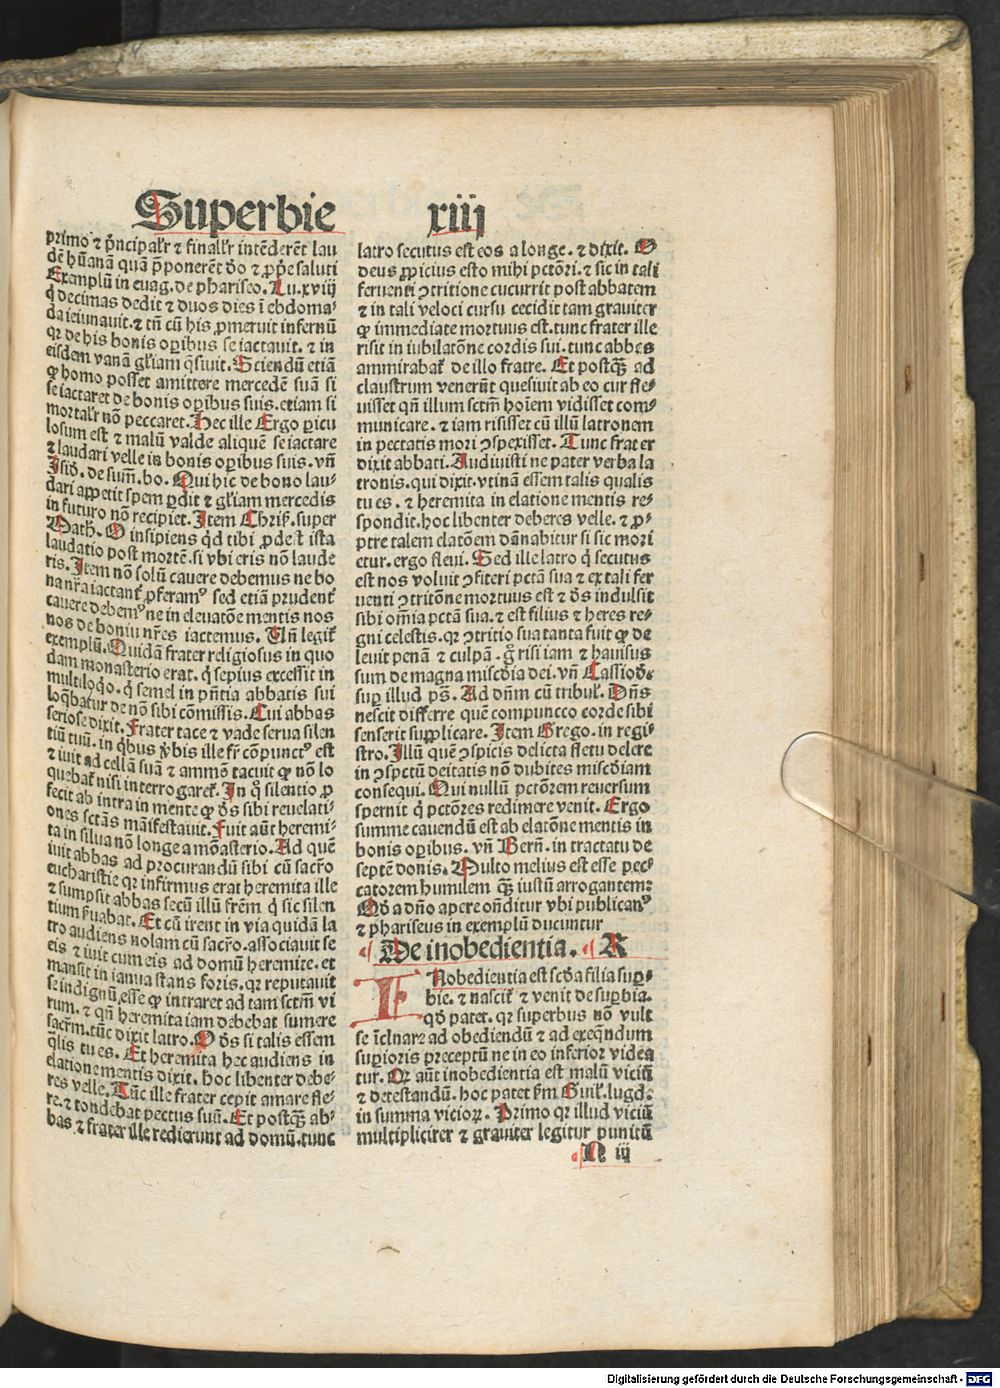 Superbie xiiij
primo ⁊ p̄ncipal'r ⁊ finalr̄ intēderēt lau
dē hūanā quā p̄ponerēt dō ⁊ ꝓp̄e saluti
Exemplū in euag. de phariseo. Lu. xviij
q̇ decimas dedit ⁊ duos dies ī ebdoma⸗
da ieiunauit. ⁊ tn̄ cū his ꝓmeruit infernū
qꝛ de his bonis oꝑibus se iactauit. ⁊ in
eisdem vanā gl'iam q̄siuit. Sciendū etiā
ꝙ homo posset amittere mercedē suā si
se iactaret de bonis oꝑibus suis. etiam si
mortalr̄ nō peccaret. Hec ille Ergo ꝑicu
losum est ⁊ malū valde aliquē se iactare
⁊ laudari velle in bonis oꝑibus suis. vn̄
Jsid̄. de sum̄. bo. Qui hic de bono lau⸗
dari appetit spem ꝑdit ⁊ gl'iam mercedis
in futuro nō recipiet. Jtem Chriſ. super
Math̄. O insipiens qd̄ tibi ꝓdest ista
laudatio post mortē. si vbi eris nō laude
ris. Jtem nō solū cauere debemus ne bo
na nr̄a iactant̄ ꝓferamꝰ sed etiā prudent̄
cauere debemꝰ ne in eleuatōe mentis nos
nos de boniu nr̄es iactemus. Un̄ legit̄
exemplū. Quidā frater religiosus in quo
dam monasterio erat. q̇ sepius excessit in
multiloq̇o. q̇ semel in pn̄tia abbatis sui
loq̄batur de nō sibi cōmissis. Cui abbas
seriose dixit. Frater tace ⁊ vade serua silen
tiū tuū. in q̇bus ṽbis ille fr̄ cōpunctꝰ est
⁊ iuit ad cellā suā ⁊ ammō tacuit ꝙ nō lo
quebat̄ nisi interrogaret̄. Jn q̇ silentio ꝓ
fecit ab intra in mente ꝙ dō̄s sibi reuelati⸗
ones sctās māifestauit. Fuit aūt heremi⸗
ta in silua nō longe a mōasterio. Ad quē
iuit abbas ad procurandū sibi cū sacr̄o
eucharistie qꝛ infirmus erat heremita ille
⁊ sumpsit abbas secū illū frēm q̇ sic silen
tium ẜuabat. Et cū irent in via quidā la
tro audiens nolam cū sacr̄o. associauit se
eis ⁊ iuit cum eis ad domū heremite. et
mansit in ianua stans foris. qꝛ reputauit
se indignū esse ꝙ intraret ad tam sctm̄ vi
rum. ⁊ qn̄ heremita iam debebat sumere
sacr̄m. tūc dixit latro. O dō̄s si talis essem
q̄lis tu es. Et heremita hec audiens in
elatione mentis dixit. hoc libenter debe⸗
res velle. Tūc ille frater cepit amare fle⸗
re. ⁊ tondebat pectus suū. Et postꝗ̄ ab⸗
bas ⁊ frater ille redierunt ad domū. tunc
latro secutus est eos a longe. ⁊ dixit. O
deus ꝓpicius esto mihi pctōri. ⁊ sic in tali
feruenti ꝯtritione cucurrit post abbatem
⁊ in tali veloci cursu cecidit tam grauiter
ꝙ immediate mortuus est. tunc frater ille
risit in iubilatōne cordis sui. tunc abbas
ammirabat̄ de illo fratre. Et postꝗ̄ ad
claustrum venerūt quesiuit ab eo cur fle⸗
uisset qn̄ illum sctm̄ hoīem vidisset com⸗
municare. ⁊ iam risisset cū illū latronem
in peccatis mori ꝯspexisset. Tunc frater
dixit abbati. Audiuisti ne pater verba la
tronis. qui dixit. vtinā essem talis qualis
tu es. ⁊ heremita in elatione mentis re⸗
spondit. hoc libenter deberes velle. ⁊ ꝓ⸗
ptre talem elatōem dānabitur si sic mori
etur. ergo fleui. Sed ille latro q̇ secutus
est nos voluit ꝯfiteri pctā sua ⁊ ex tali fer
uenti ꝯtritōne mortuus est ⁊ dō̄s indulsit
sibi om̄ia pctā sua. ⁊ est filius ⁊ heres re⸗
gni celestis. qꝛ ꝯtritio sua tanta fuit ꝙ de
leuit penā ⁊ culpā. gͦ risi iam ⁊ hauisus
sum de magna miscdia dei. vn̄ Cassiod̄.
suꝑ illud ps̄. Ad dn̄m cū tribul̄. Dn̄s
nescit differre quē compuncco corde sibi
senserit supplicare. Jtem Grego. in regi⸗
stro. Jllū quē ꝯspicis delicta fletu delere
in ꝯspctū deitatis nō dubites miscdiam
consequi. Qui nullū pctōrem reuersum
spernit q̇ pctōres redimere venit. Ergo
summe cauendū est ab elatōne mentis in
bonis oꝑibus. vn̄ Bern̄. in tractatu de
septē donis. Multo melius est esse pec⸗
catorem humilem ꝗ̄ iustū arrogantem:
Qd̄ a dn̄o aꝑere on̄ditur vbi publicanꝰ
⁊ phariseus in exemplū ducuntur
De inobedientia. R
INobedientia est scd̄a filia suꝑ⸗
bie. ⁊ nascit̄ ⁊ venit de suꝑbia.
qd̄ pater. qꝛ superbus nō vult
se īclinare ad obediendū ⁊ ad exeq̄ndum
suꝑioris preceptū ne in eo inferior videa
tur. Qꝛ aūt inobedientia est malū viciū
⁊ detestandū. hoc patet ẜm Guil̄. lugd.
in summa vicioꝝ. Primo qꝛ illud viciū
multiplicirer ⁊ grauiter legitur punitū
N iij
Digitalisierung gefördert durch die Deutsche Forschungsgemeinschaft - DFG